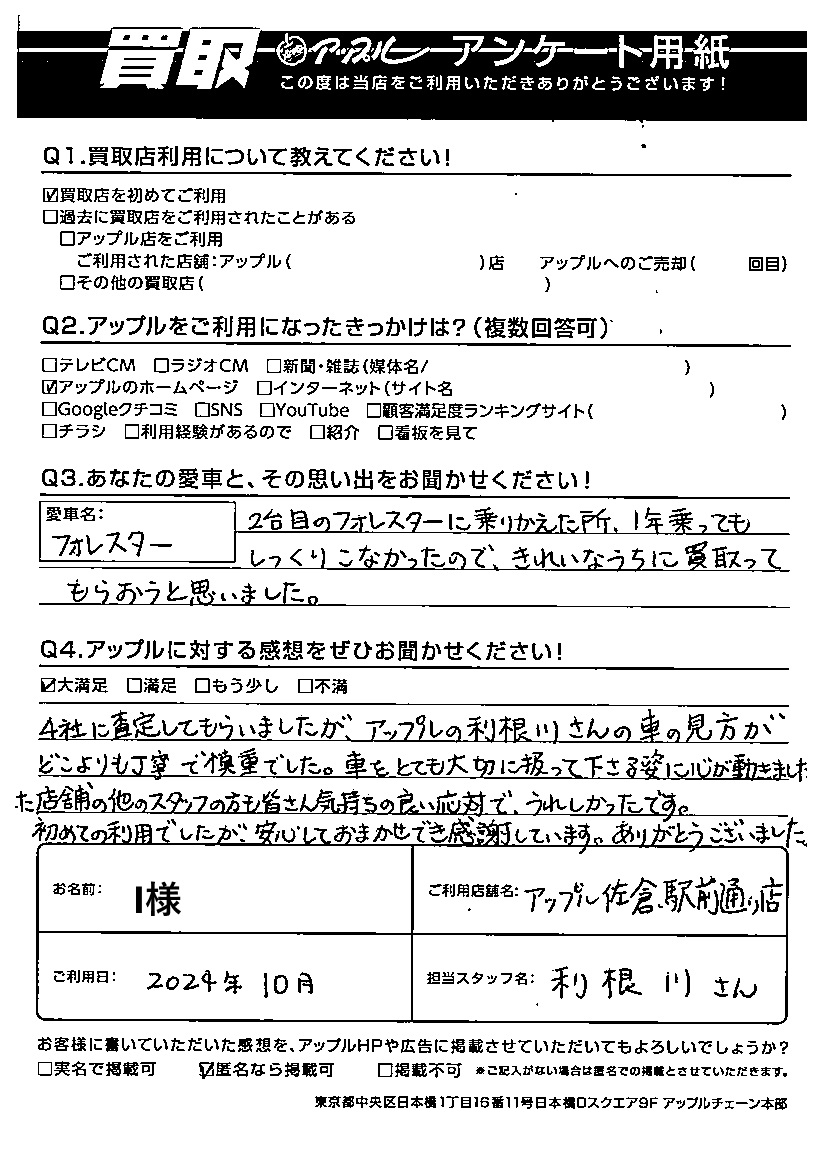 買取 アップル アンケート用紙
この度は当店をご利用いただきありがとうございます!
Q1.買取店利用について教えてください!
☑買取店を初めてご利用
□過去に買取店をご利用されたことがある
□アップル店をご利用
ご利用された店舗:アップル( )店 アップルへのご売却( 回目)
□その他の買取店( )
Q2.アップルをご利用になったきっかけは?(複数回答可)
□テレビCM □ラジオCM □新聞・雑誌(媒体名/ )
☑アップルのホームページ □インターネット(サイト名 )
□Googleクチコミ □SNS □YouTube □顧客満足度ランキングサイト( )
□チラシ □利用経験があるので □紹介 □看板を見て
Q3.あなたの愛車と、その思い出をお聞かせください!
愛車名:
フォレスター
2台目のフォレスターに乗りかえた所、1年乗っても
しっくりこなかったので、きれいなうちに買取って
もらおうと思いました。
Q4.アップルに対する感想をぜひお聞かせください!
☑大満足 □満足 □もう少し □不満
4社に査定してもらいましたが、アップルの利根川さんの車の見方が
どこよりも丁寧で慎重でした。車をとても大切に扱って下さる姿に心が動きまし
た店舗の他のスタッフの方も皆さん気持ちの良い応対で、うれしかったです。
初めての利用でしたが、安心しておまかせでき感謝しています。ありがとうございました。
お名前: I様
ご利用店舗名: アップル佐倉駅前通り店
ご利用日: 2024年10月
担当スタッフ名: 利根川さん
お客様に書いていただいた感想を、アップルHPや広告に掲載させていただいてもよろしいでしょうか?
□実名で掲載可 ☑匿名なら掲載可 □掲載不可 ※ご記入がない場合は匿名での掲載とさせていただきます。
東京都中央区日本橋1丁目16番11号日本橋Dスクエア9F アップルチェーン本部